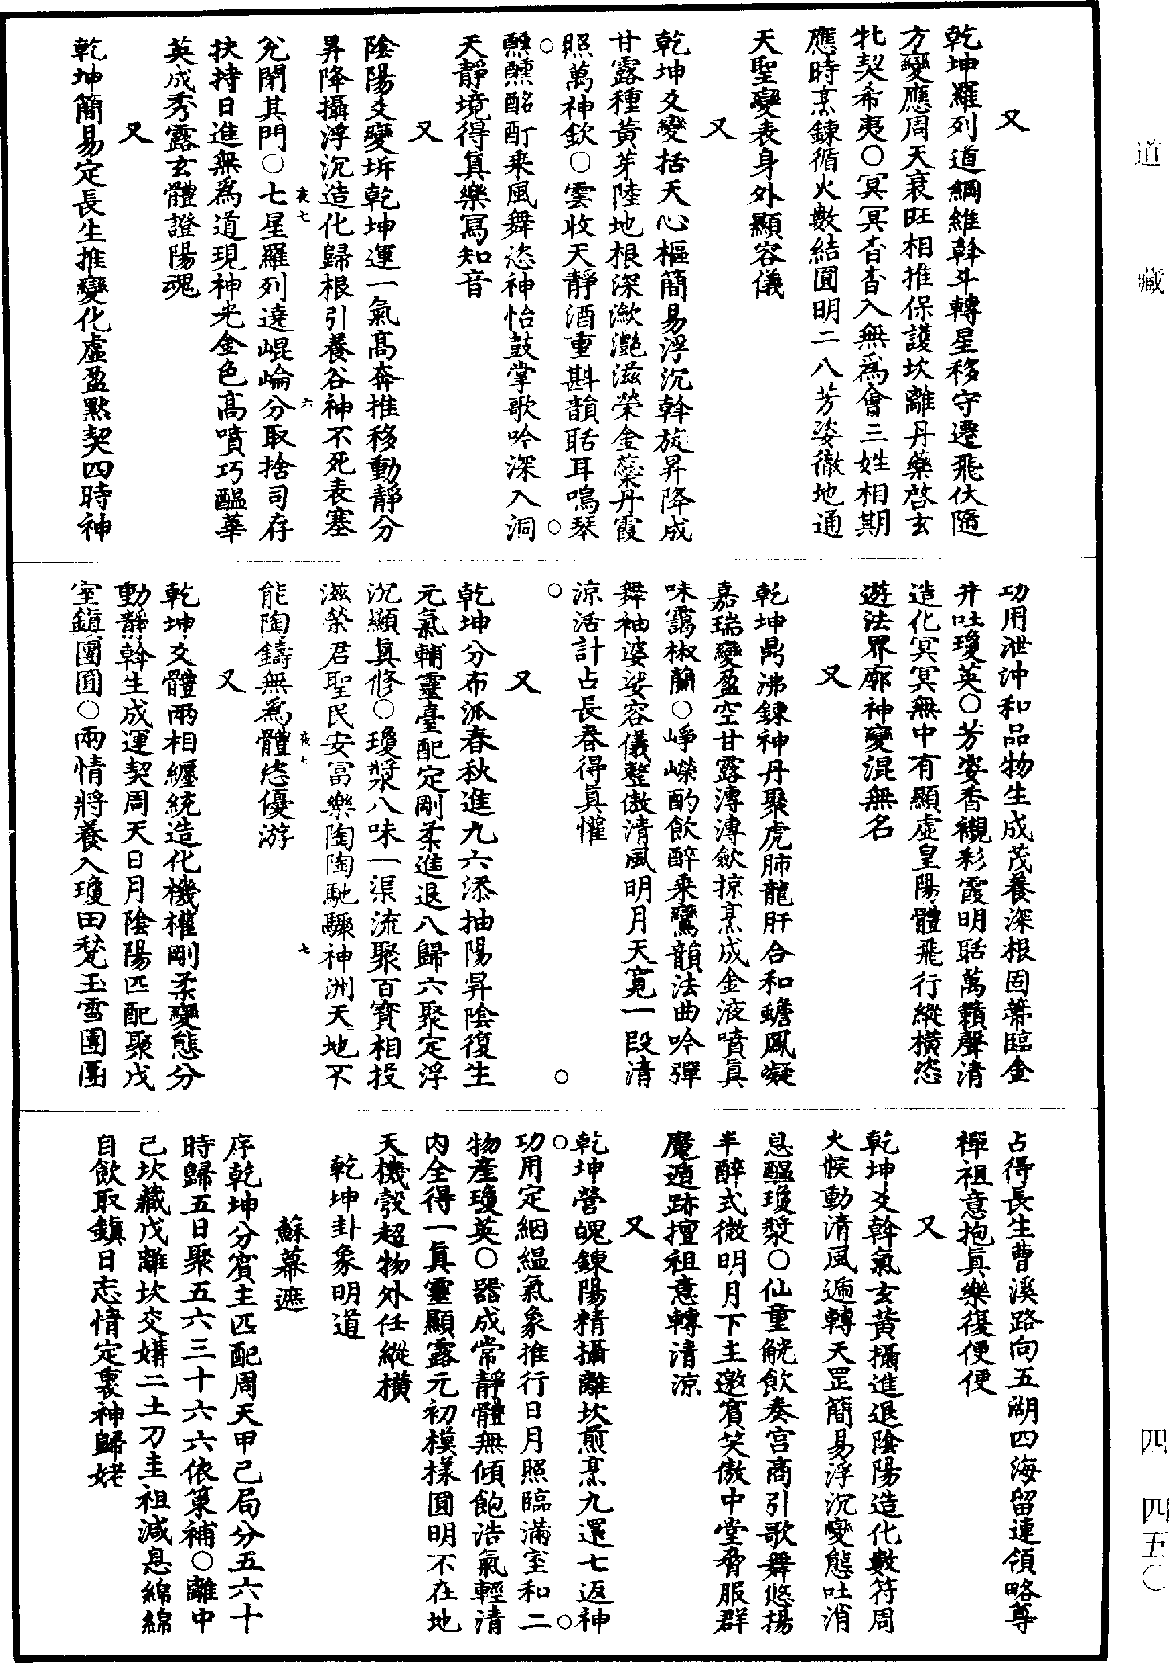 道藏
又
乾坤羅列道綱維斡斗轉星移守遷飛伏隨
方變應周天衰旺相推保護坎離丹藥啓玄
牝契希夷○冥冥杳杳入無爲會三姓相期
應時烹鍊循火數結圓明二八芳姿徹地通
天聖變表身外顯容儀
又
乾坤爻變括天心樞簡易浮沉斡旋昇降成
甘露種黃芽陸地根深瀲灧滋榮金蘂丹霞
照萬神欽○雲收天靜酒重斟韻聒耳鳴琴
醺醺酩酊乘風舞恣神怡鼓掌歌吟深入洞
天靜境得真樂寫知音
又
陰陽爻變坼乾坤運一氣高奔推移動靜分
昇降攝浮沉造化歸根引養谷神不死表塞
兌閉其門○七星羅列遶崐崘分取捨司存
扶持日進無爲道現神光金色高噴巧醞華
英成秀露玄體證陽魂
又
乾坤簡易定長生推變化虛盈默契四時神
功用泄沖和品物生成茂養深根固蒂臨金
井吐瓊英○芳姿香襯彩霞明聒萬籟聲清
造化冥冥無中有顯虛皇陽體飛行縱橫恣
遊法界廓神變混無名
又
乾坤鼎沸鍊神丹聚虎肺龍肝合和蟾鳳凝
嘉瑞變盈空甘露漙漙歛掠烹成金液噴真
味靄椒蘭○崢嶸酌飲醉乘鸞韻法曲吟彈
舞袖婆娑容儀整傲清風明月天寬一段清
涼活計占長春得真懽
又
乾坤分布派春秋進九六添抽陽昇陰復生
元氣輔靈臺配定剛柔進退八歸六聚定浮
沉顯真修○瓊漿八味一渠流聚百寳相投
滋榮君聖民安富樂陶陶馳驟神洲天地不
能陶鑄無爲體恣優游
又
乾坤爻體兩相纏統造化機權剛柔變態分
動靜斡生成運契周天日月陰陽匹配聚戊
室鎮團圓○兩情將養入瓊田甃玉雪團團
占得長生曹溪路向五湖四海留連領略尊
禪祖意抱真樂復便便
又
乾坤爻斡氣玄黃攝進退陰陽造化數符周
火候動清風遍轉天罡簡易浮沉變態吐消
息醞瓊漿○仙童觥飲奏宮商引歌舞悠揚
半醉式微明月下主邀賓笑傲中堂脅服群
魔遁跡擅祖意轉清涼
又
乾坤營魄鍊陽精攝離坎煎烹九還七返神
功用定絪縕氣象推行日月照臨滿室和二
物產瓊英○器成常靜體無傾飽浩氣輕清
內全得一真靈顯露元初模樣圓明不在地
天機彀超物外任縱橫
乾坤卦象明道
蘇幕遮
序乾坤分賓主匹配周天甲己局分五六十
時歸五日聚五六三十六六依策補○離中
己坎藏戊離坎交媾二土刀圭祖減息綿綿
自飲取鎮日志情定裏神歸姥
四 四五○